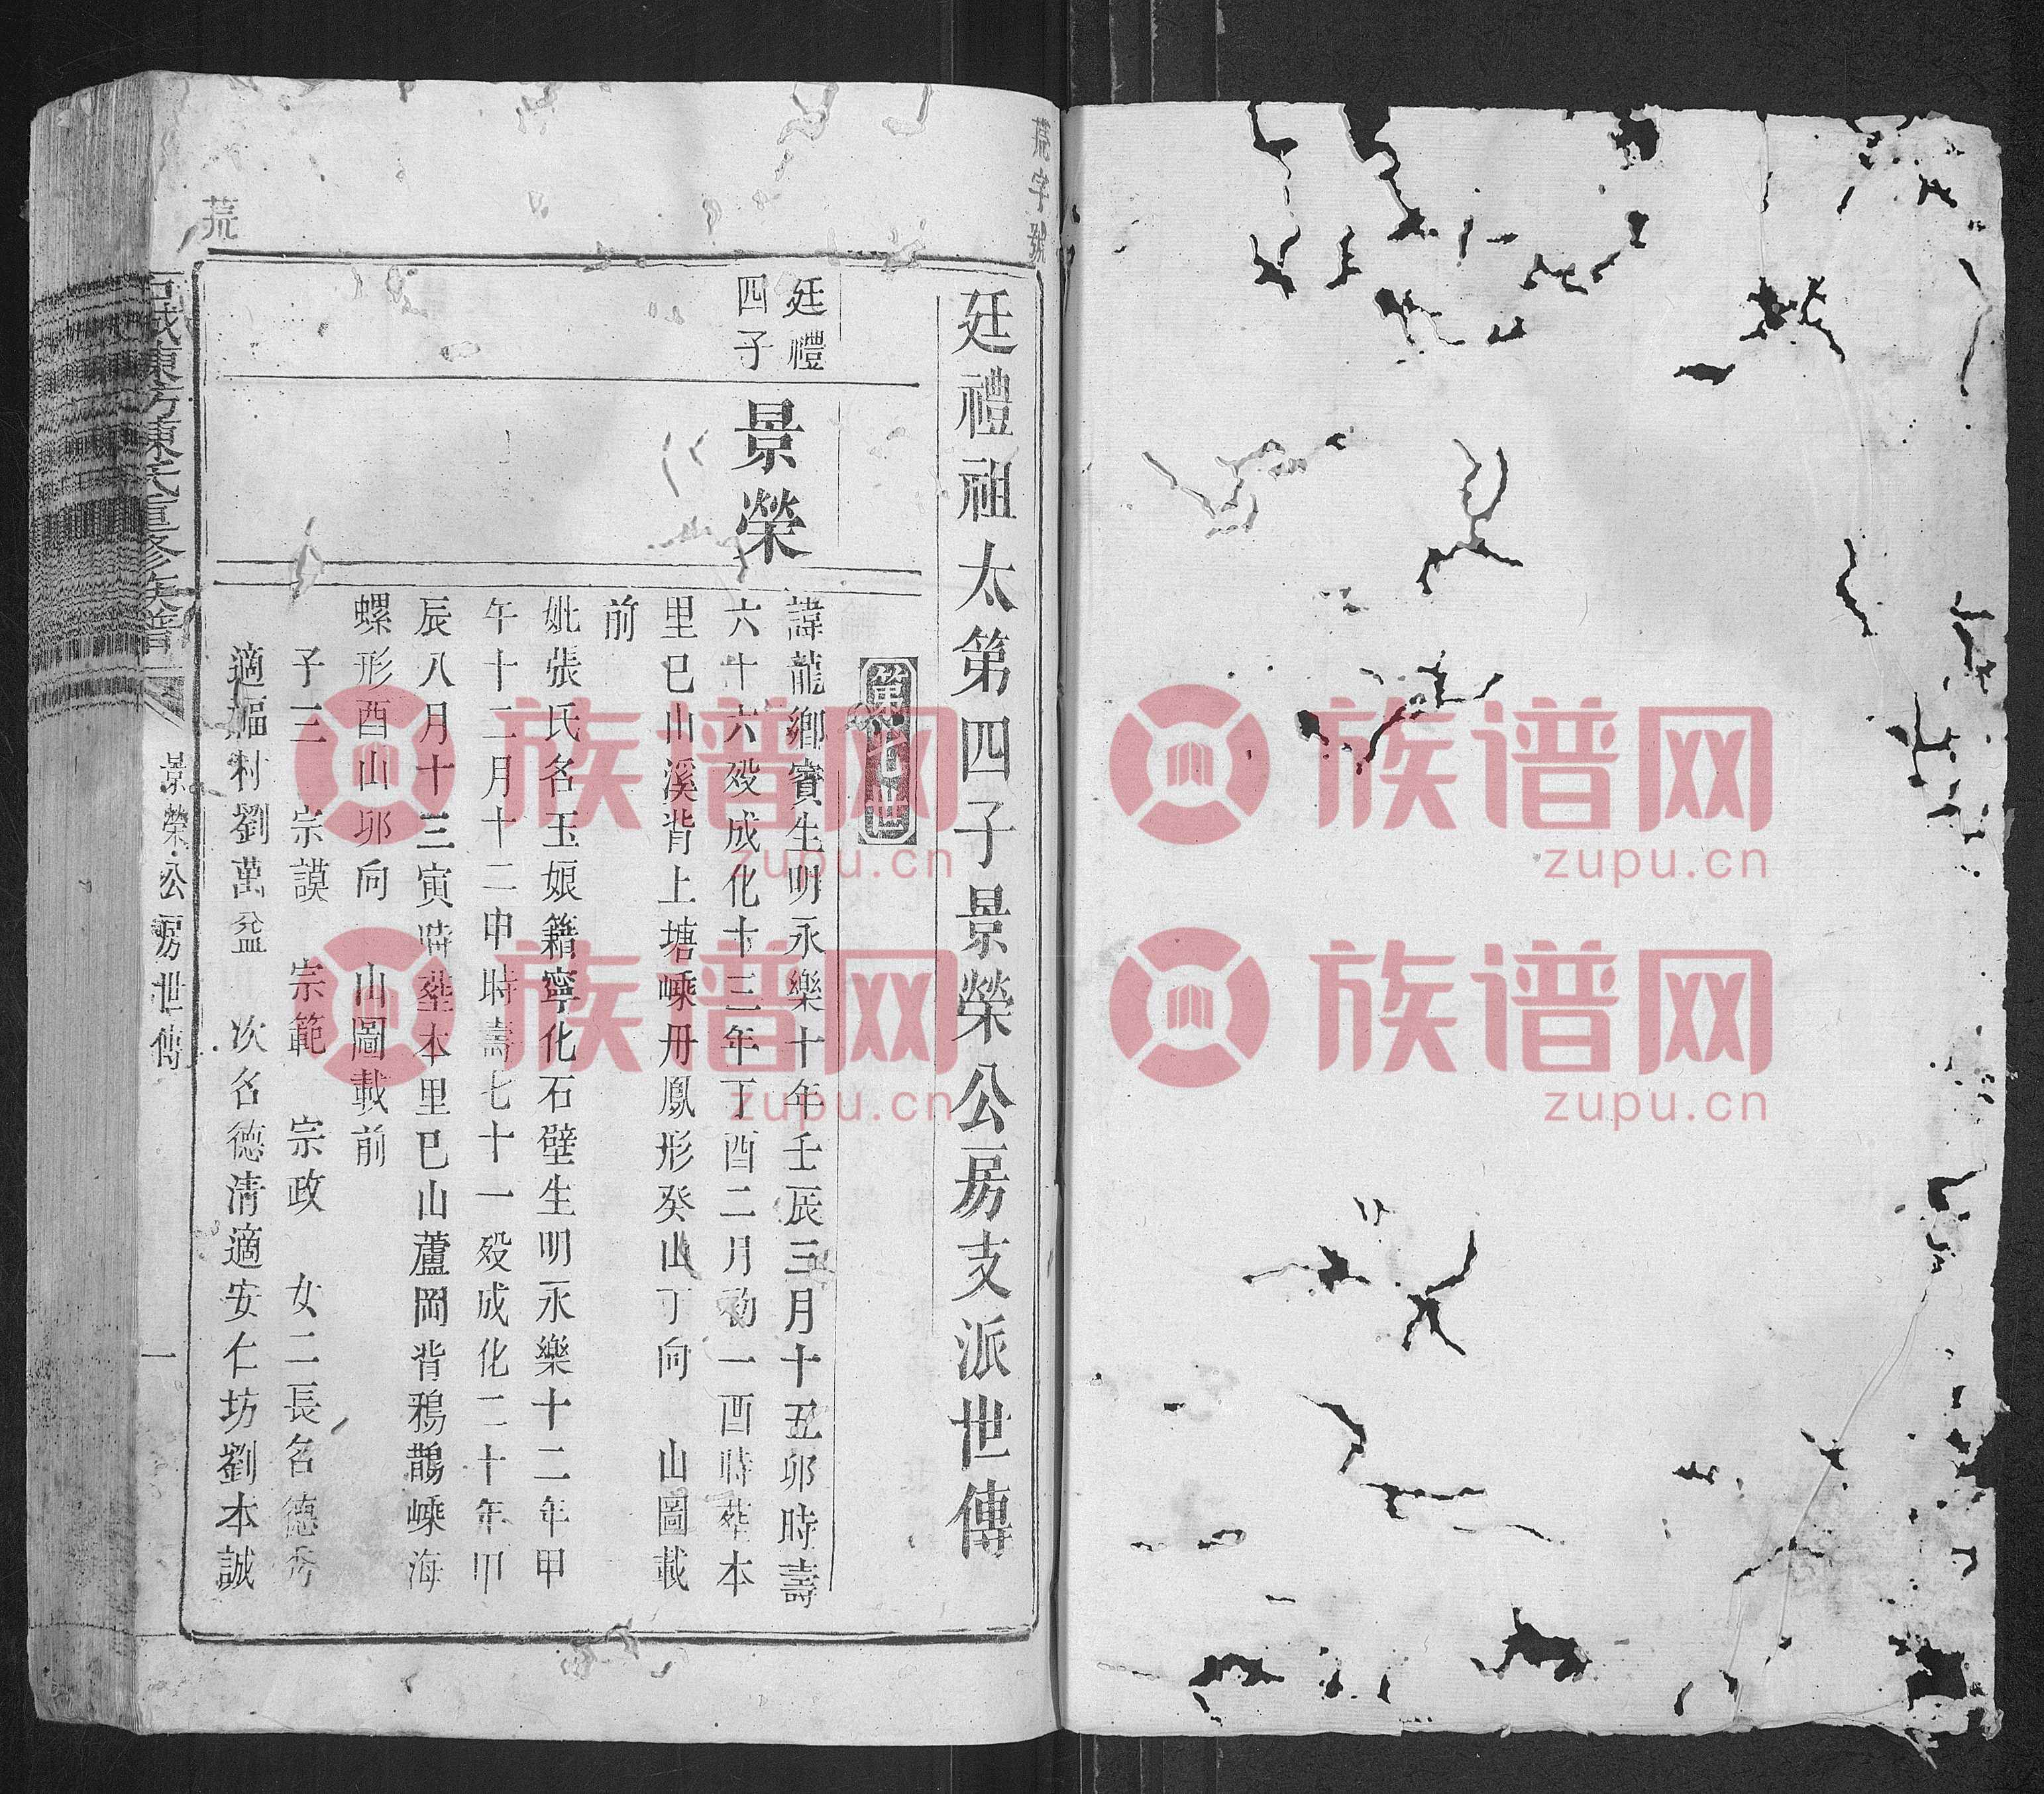 荒字號
廷禮祖太第四子景榮公房支派世傳
第七世
廷禮
四子
景榮
諱龍鄉賓生明永樂十年壬辰三月十五卯時壽
六十六殁成化十三年丁酉二月初一酉時葬本
里巳山溪背上塘嵊丹鳳形癸山丁向 山圖載
前
妣張氏名玉娘籍寧化石壁生明永樂十二年甲
午十二月十二申時壽七十一殁成化二十年甲
辰八月十三寅時葬本里巳山蘆岡背鴉鵲嵊海
螺形酉山卯向 山圖載前
子三 宗謨 宗範 宗政 女二長名德秀
適福村劉萬盆 次名德清適安仁坊劉本誠
荒
陳氏重修族譜
景榮公房世傳
一
族谱网
zupu.cn
族谱网
zupu.cn
族谱网
zupu.cn
族谱网
zupu.cn